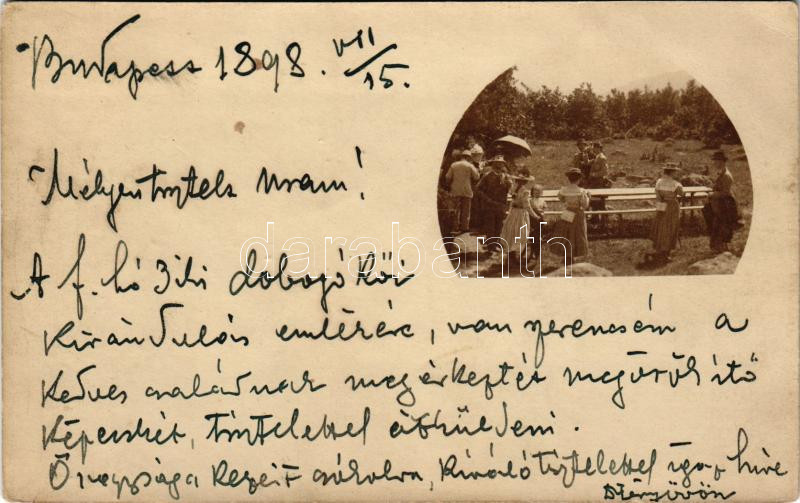 Budapest 1898. VII/15.
Mélyen tisztelt Uram!
A f. hó 3iki Dobogó Kői
kirándulás emlékére, van szerencsém a
kedves családnak megérkeztét megörökítő
képecskét, tisztelettel átküldeni.
Ő nagysága kezeit csókolva, kiváló tisztelettel igaz híve
darabanth.com